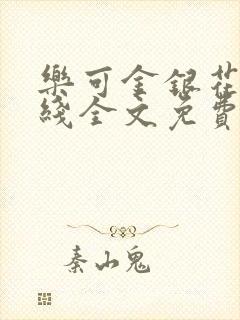 樂可金銀花
綫全文免費
秦山鬼